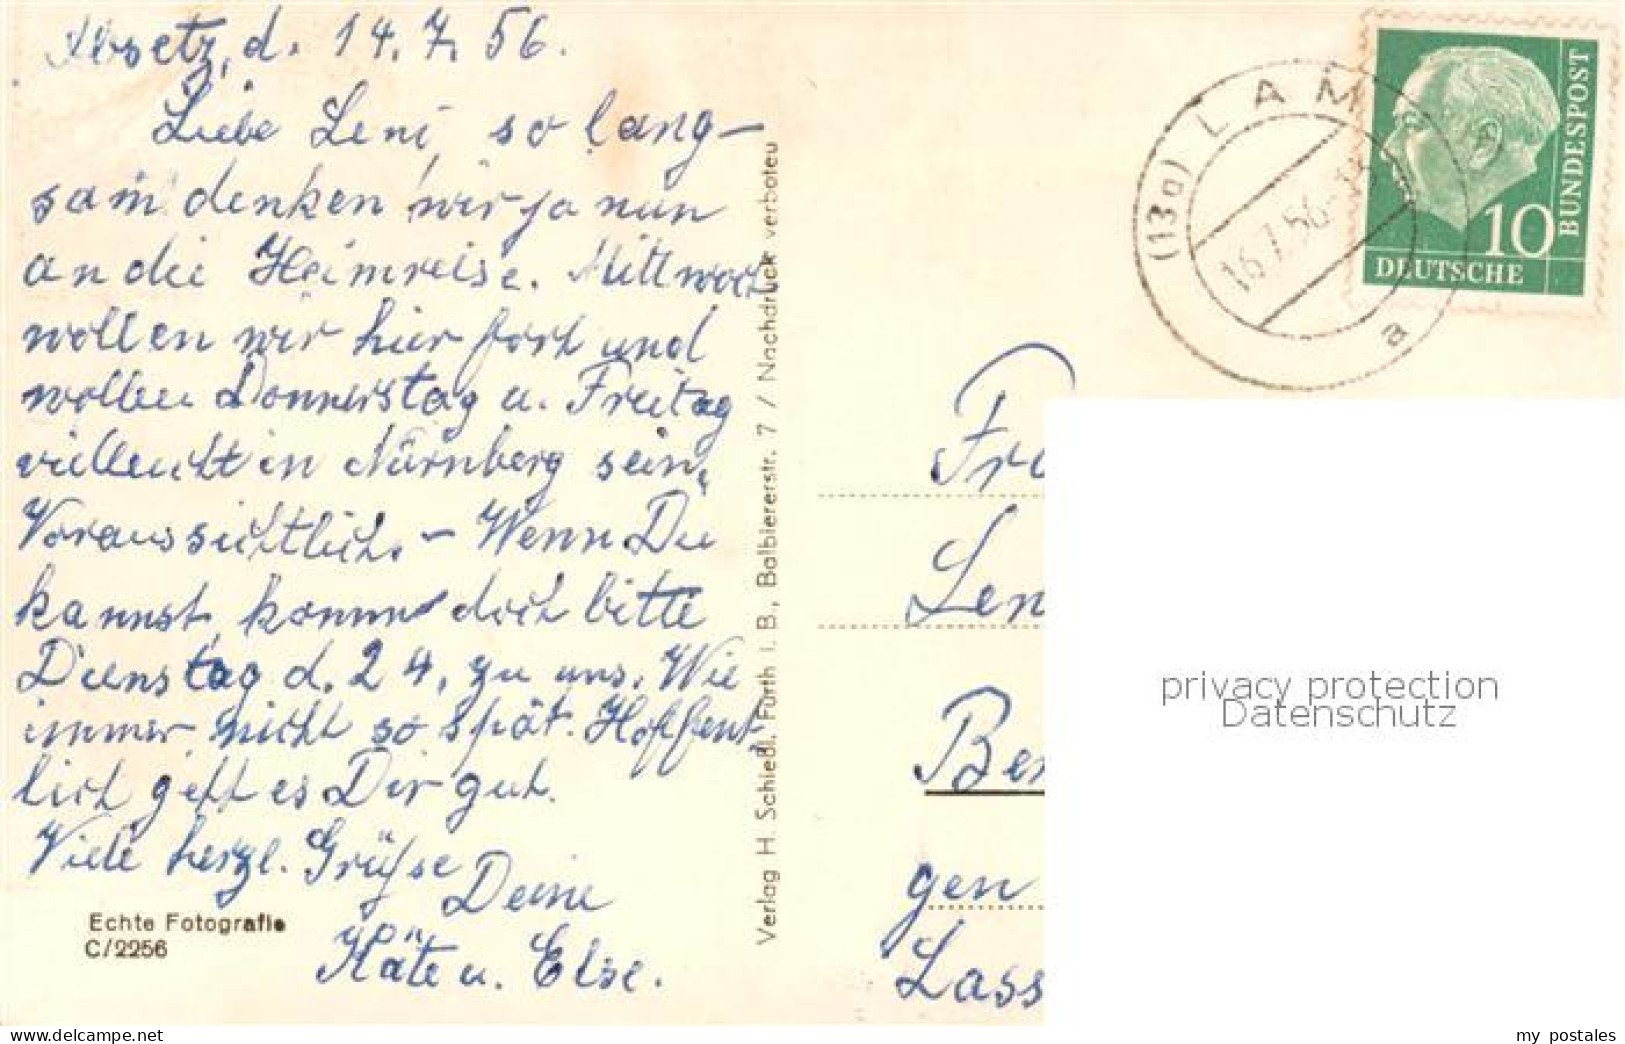 Absetz, d. 14. 7. 56.
Liebe Leni, so lang-
sam denken wir ja nun
an die Heimreise. Mittwoch
wollen wir hier fort und
wollen Donnerstag u. Freitag
vielleicht in Nürnberg sein,
Voraussichtlich. – Wenn Du
kannst, komm doch bitte
Dienstag d. 24. zu uns. Wie
immer nicht so spät. Hoffent-
lich geht es Dir gut.
Viele herzl. Grüsse
Deine
Käte u. Else.
Echte Fotografie
C/2256
Verlag H. Schießl, Fürth i. B., Balbiererstr. 7 / Nachdruck verboten
(13a) LAM
16.7.56
a
DEUTSCHE
BUNDESPOST
10
Fr
Len
Ber
gen
Lass
privacy protection
Datenschutz
www.ansichtskarten-center.de
my postales